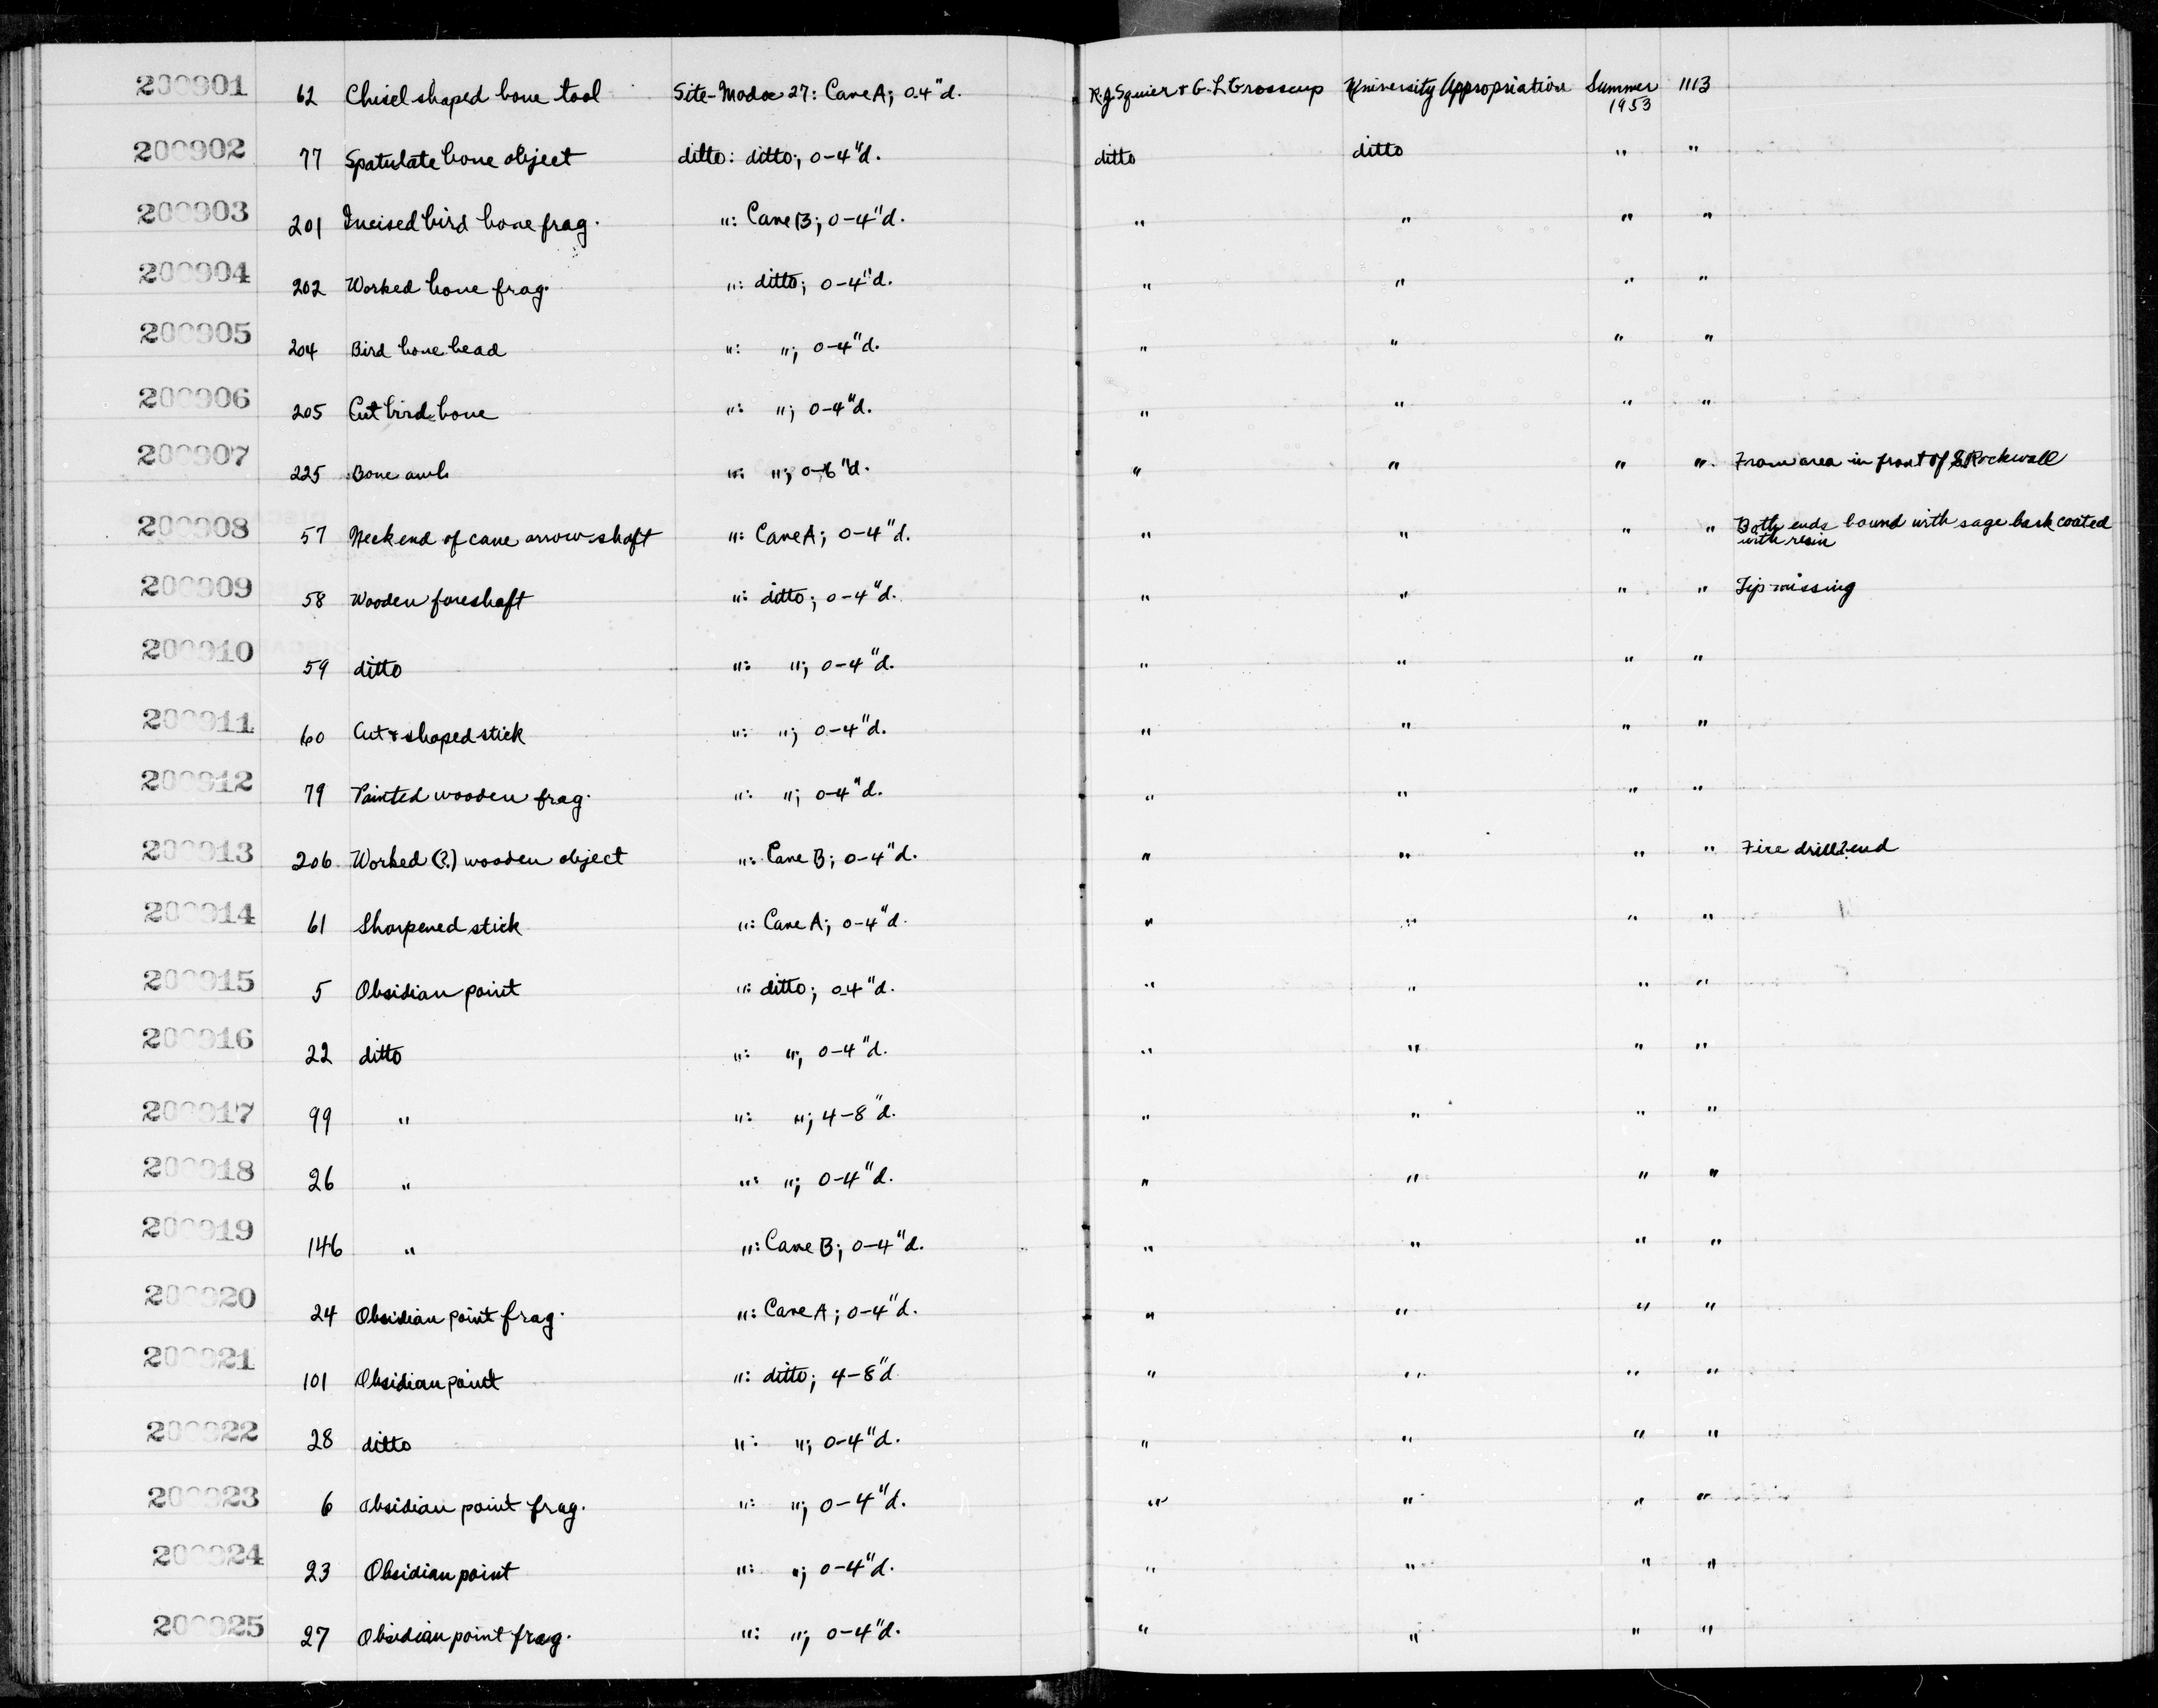 200901 62 Chisel shaped bone tool Site-Modoc 27: Cave A; 0-4"d. R.J. Squier + G. L. Grosscup University Appropriation Summer 1953 1113
200902 77 Spatulate bone object ditto: ditto; 0-4"d. ditto ditto " "
200903 201 Incised bird bone frag. ": Cave B; 0-4"d. " " " "
200904 202 Worked bone frag. ": ditto; 0-4"d. " " " "
200905 204 Bird bone bead ": "; 0-4"d. " " " "
200906 205 Cut bird bone ": "; 0-4"d. " " " "
200907 225 Bone awl ": "; 0-6"d. " " " " From area in front of Rockwall
200908 57 Neck end of cane arrow shaft ": Cave A; 0-4"d. " " " " Both ends bound with sage bark coated
with resin
200909 58 Wooden foreshaft ": ditto; 0-4"d. " " " " Tip missing
200910 59 ditto ": "; 0-4"d. " " " "
200911 60 Cut + shaped stick ": "; 0-4"d. " " " "
200912 79 Painted wooden frag. ": "; 0-4"d. " " " "
200913 206 Worked (?) wooden object ": Cave B; 0-4"d. " " " " Fire drill? end
200914 61 Sharpened stick ": Cave A; 0-4"d. " " " "
200915 5 Obsidian point ": ditto; 0-4"d. " " " "
200916 22 ditto ": "; 0-4"d. " " " "
200917 99 " ": "; 4-8"d. " " " "
200918 26 " ": "; 0-4"d. " " " "
200919 146 " ": Cave B; 0-4"d. " " " "
200920 24 Obsidian point frag. ": Cave A; 0-4"d. " " " "
200921 101 Obsidian point ": ditto; 4-8"d " " " "
200922 28 ditto ": "; 0-4"d. " " " "
200923 6 Obsidian point frag. ": "; 0-4"d. " " " "
200924 23 Obsidian point ": "; 0-4"d. " " " "
200925 27 Obsidian point frag. ": "; 0-4"d. " " " "